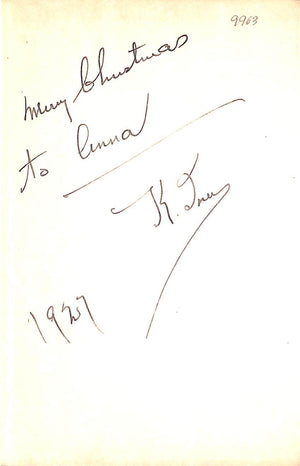 9963
Merry Christmas
to Anna
K.
1927